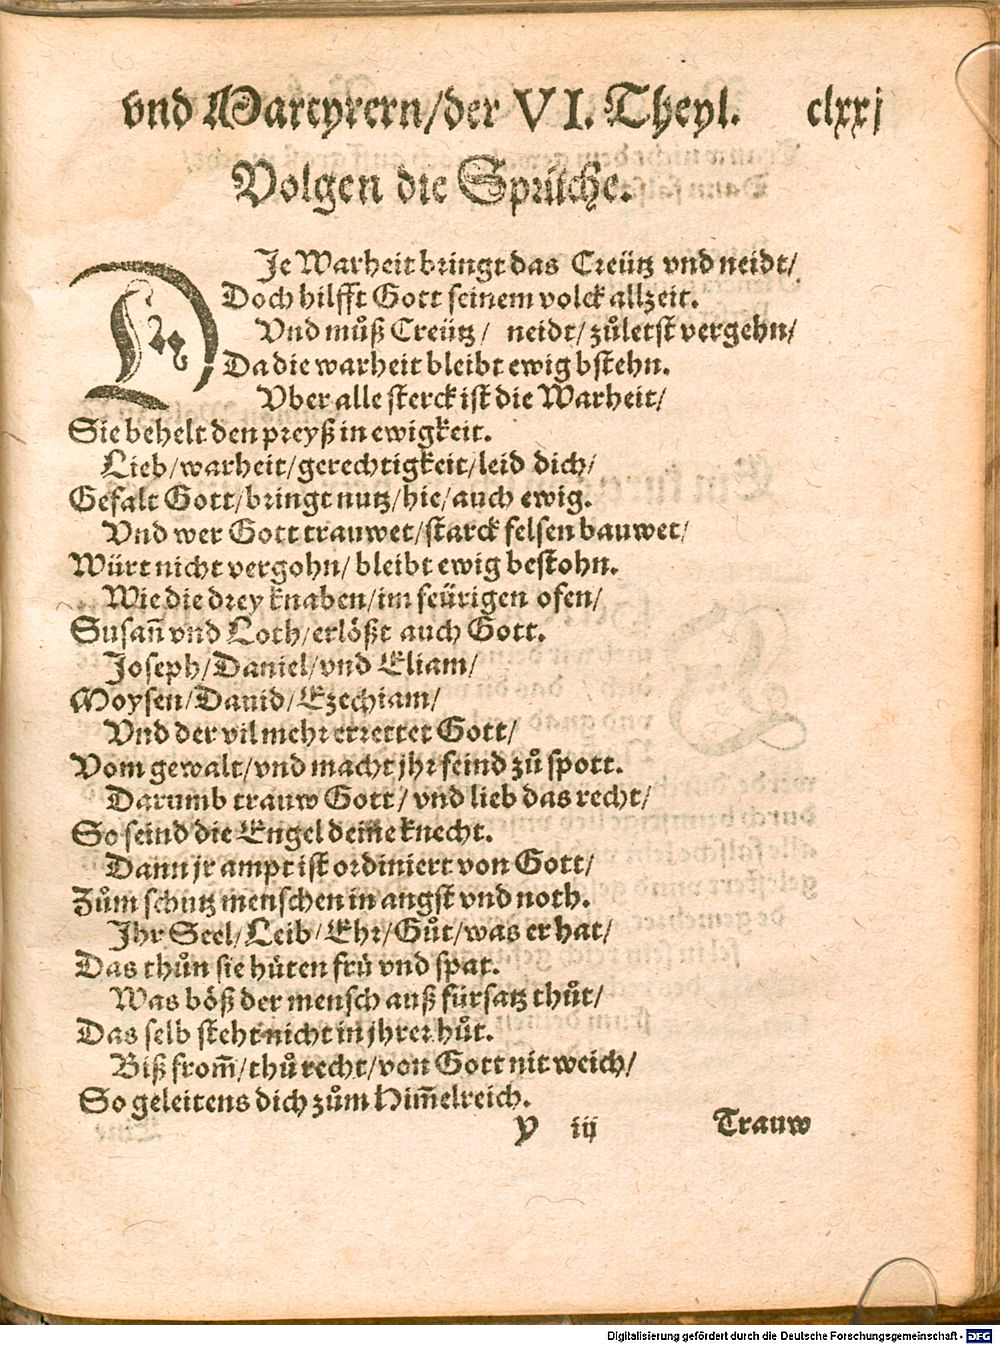 vnd Martyrern/der VI. Theyl. clxxj
Volgen die Sprüche.
DJe Warheit bringt das Creütz vnd neidt/
Doch hilfft Gott seinem volck allzeit.
Vnd můß Creütz/ neidt/ zůletst vergehn/
Da die warheit bleibt ewig bstehn.
Vber alle sterck ist die Warheit/
Sie behelt den preyß in ewigkeit.
Lieb/warheit/gerechtigkeit/leid dich/
Gefalt Gott/bringt nutz/hie/auch ewig.
Vnd wer Gott trauwet/starck felsen bauwet/
Würt nicht vergohn/ bleibt ewig bestohn.
Wie die drey knaben/im feürigen ofen/
Susan̄ vnd Loth/erlößt auch Gott.
Joseph/Daniel/vnd Eliam/
Moysen/Dauid/Ezechiam/
Vnd der vil mehr errettet Gott/
Vom gewalt/vnd macht jhr feind zů spott.
Darumb trauw Gott/ vnd lieb das recht/
So seind die Engel deine knecht.
Dann jr ampt ist ordiniert von Gott/
Zům schutz menschen in angst vnd noth.
Jhr Seel/Leib/Ehr/Gůt/was er hat/
Das thůn sie hüten frü vnd spat.
Was böß der mensch auß fürsatz thůt/
Das selb steht nicht in jhrer hůt.
Biß from̄/thů recht/von Gott nit weich/
So geleitens dich zům Him̄elreich.
y iij Trauw
Digitalisierung gefördert durch die Deutsche Forschungsgemeinschaft - DFG